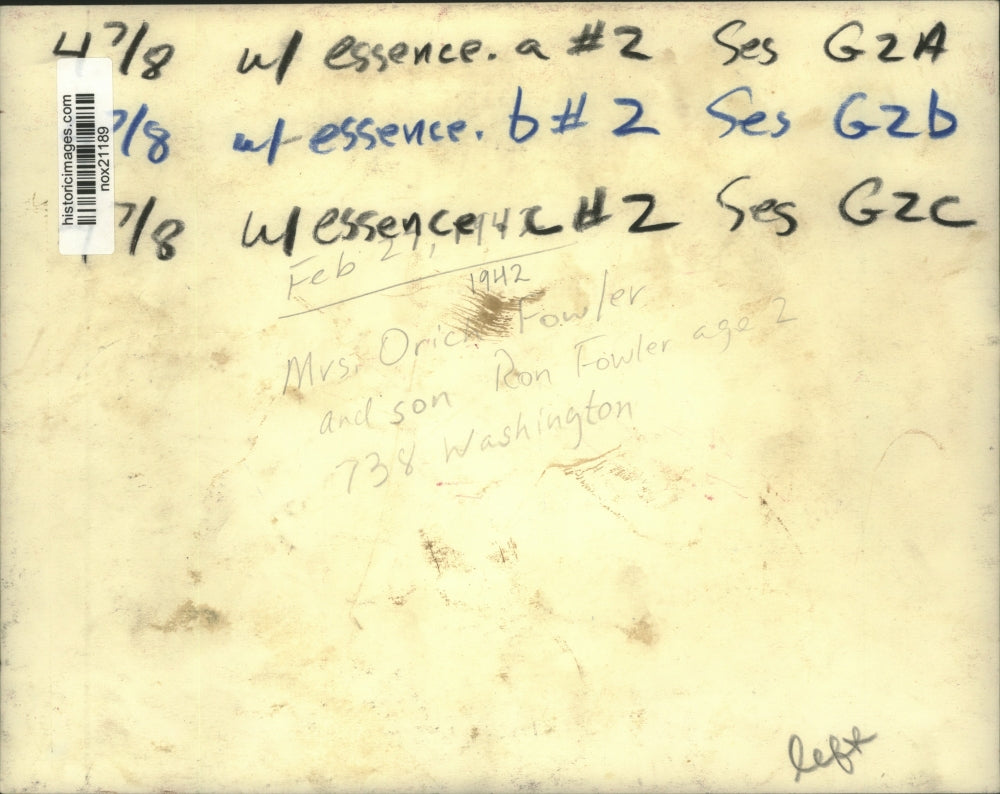 4 7/8 w/ essence. a #2 Ses G2A
7/8 w/ essence. b #2 Ses G2b
7/8 w/ essence c #2 Ses G2C
historicimages.com
nox21189
Feb 1942
1942
Mrs. Fowler
and son Ron Fowler age 2
738 Washington
left